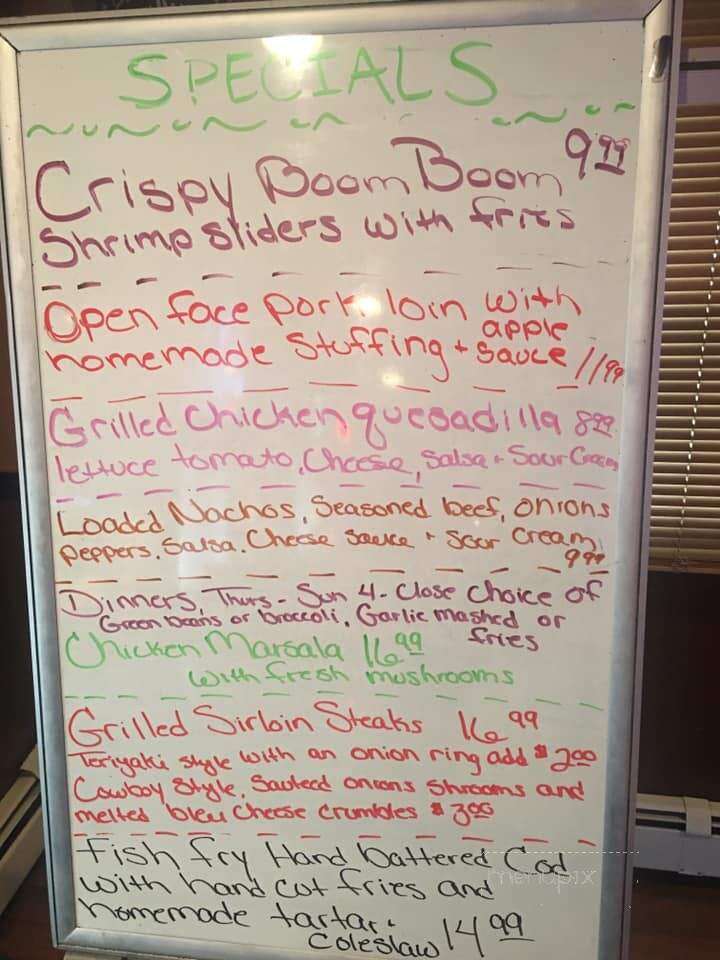 SPECIALS
Crispy Boom Boom 9.99
Shrimp sliders with fries
Open face pork loin with
homemade stuffing + apple sauce 11.99
Grilled chicken quesadilla 8.99
lettuce tomato, Cheese, Salsa + Sour Cream
Loaded Nachos, Seasoned beef, onions
Peppers, Salsa, Cheese Sauce + Sour Cream
9.99
Dinners, Thurs - Sun 4 - Close Choice of
Green beans or broccoli, Garlic mashed or
fries
Chicken Marsala 16.99
with fresh mushrooms
Grilled Sirloin Steaks 16.99
Teriyaki style with an onion ring add $2.00
Cowboy Style, Sauteed onions Shrooms and
melted bleu Cheese crumbles $3.00
Fish fry Hand battered Cod
with hand cut fries and
homemade tartar +
Coleslaw 14.99
menupix